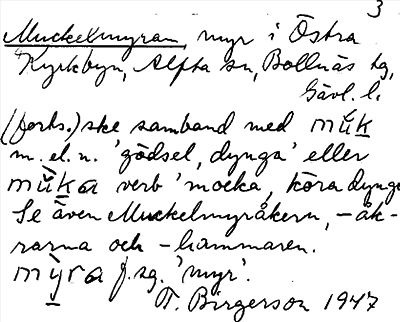 3
Muckelmyran, myr i Östra
Kyrkbyn, Alfta sn, Bollnäs tg,
Gävl. l.
(forts.) ske samband med mŭk
m. el. n. 'gödsel, dynga' eller
mŭka verb 'mocka, köra dynga
Se även Muckelmyråkern, -åk-
rarna och -hammaren.
my̆ra f. sg. 'myr'.
T. Birgerson 1947